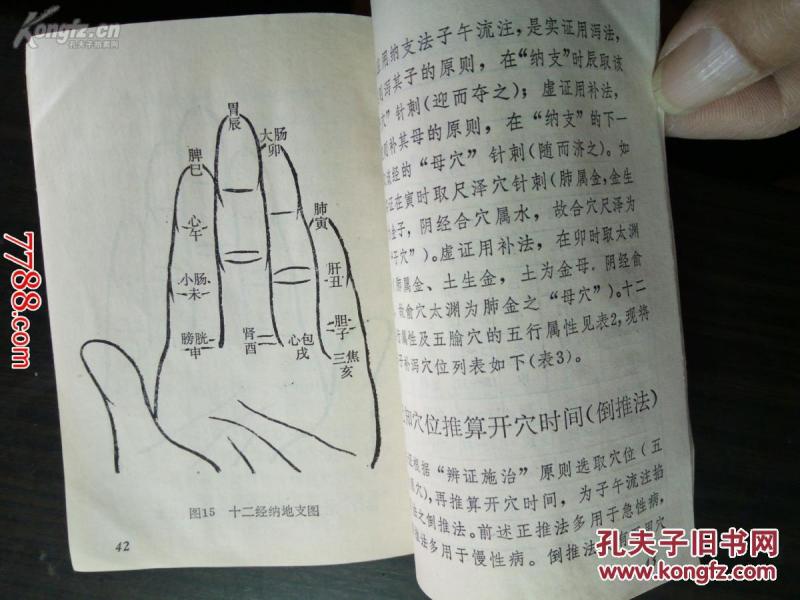 Kongfz.cn
孔夫子旧书网
7788.com
胃
辰
大肠
卯
脾
巳
心
午
肺
寅
小肠
未
肝
丑
膀胱
申
肾
酉
心包
戌
胆
子
三焦
亥
图15 十二经纳地支图
42
用纳支法子午流注，是实证用泻法，
泻其子的原则，在“纳支”时辰取该
穴”针刺(迎而夺之)；虚证用补法，
则补其母的原则，在“纳支”的下一
该经的“母穴”针刺(随而济之)。如
证在寅时取尺泽穴针刺(肺属金，金生
金子，阴经合穴属水，故合穴尺泽为
子穴”)。虚证用补法，在卯时取太渊
肺属金、土生金，土为金母．阴经俞
故俞穴太渊为肺金之“母穴”)。十二
属性及五腧穴的五行属性见表2，现将
子补泻穴位列表如下(表3)。
和穴位推算开穴时间(倒推法)
根据“辨证施治”原则选取穴位(五
穴)，再推算开穴时间，为子午流注掐
法之倒推法。前述正推法多用于急性病，
推法多用于慢性病。倒推法
孔夫子旧书网
www.kongfz.com